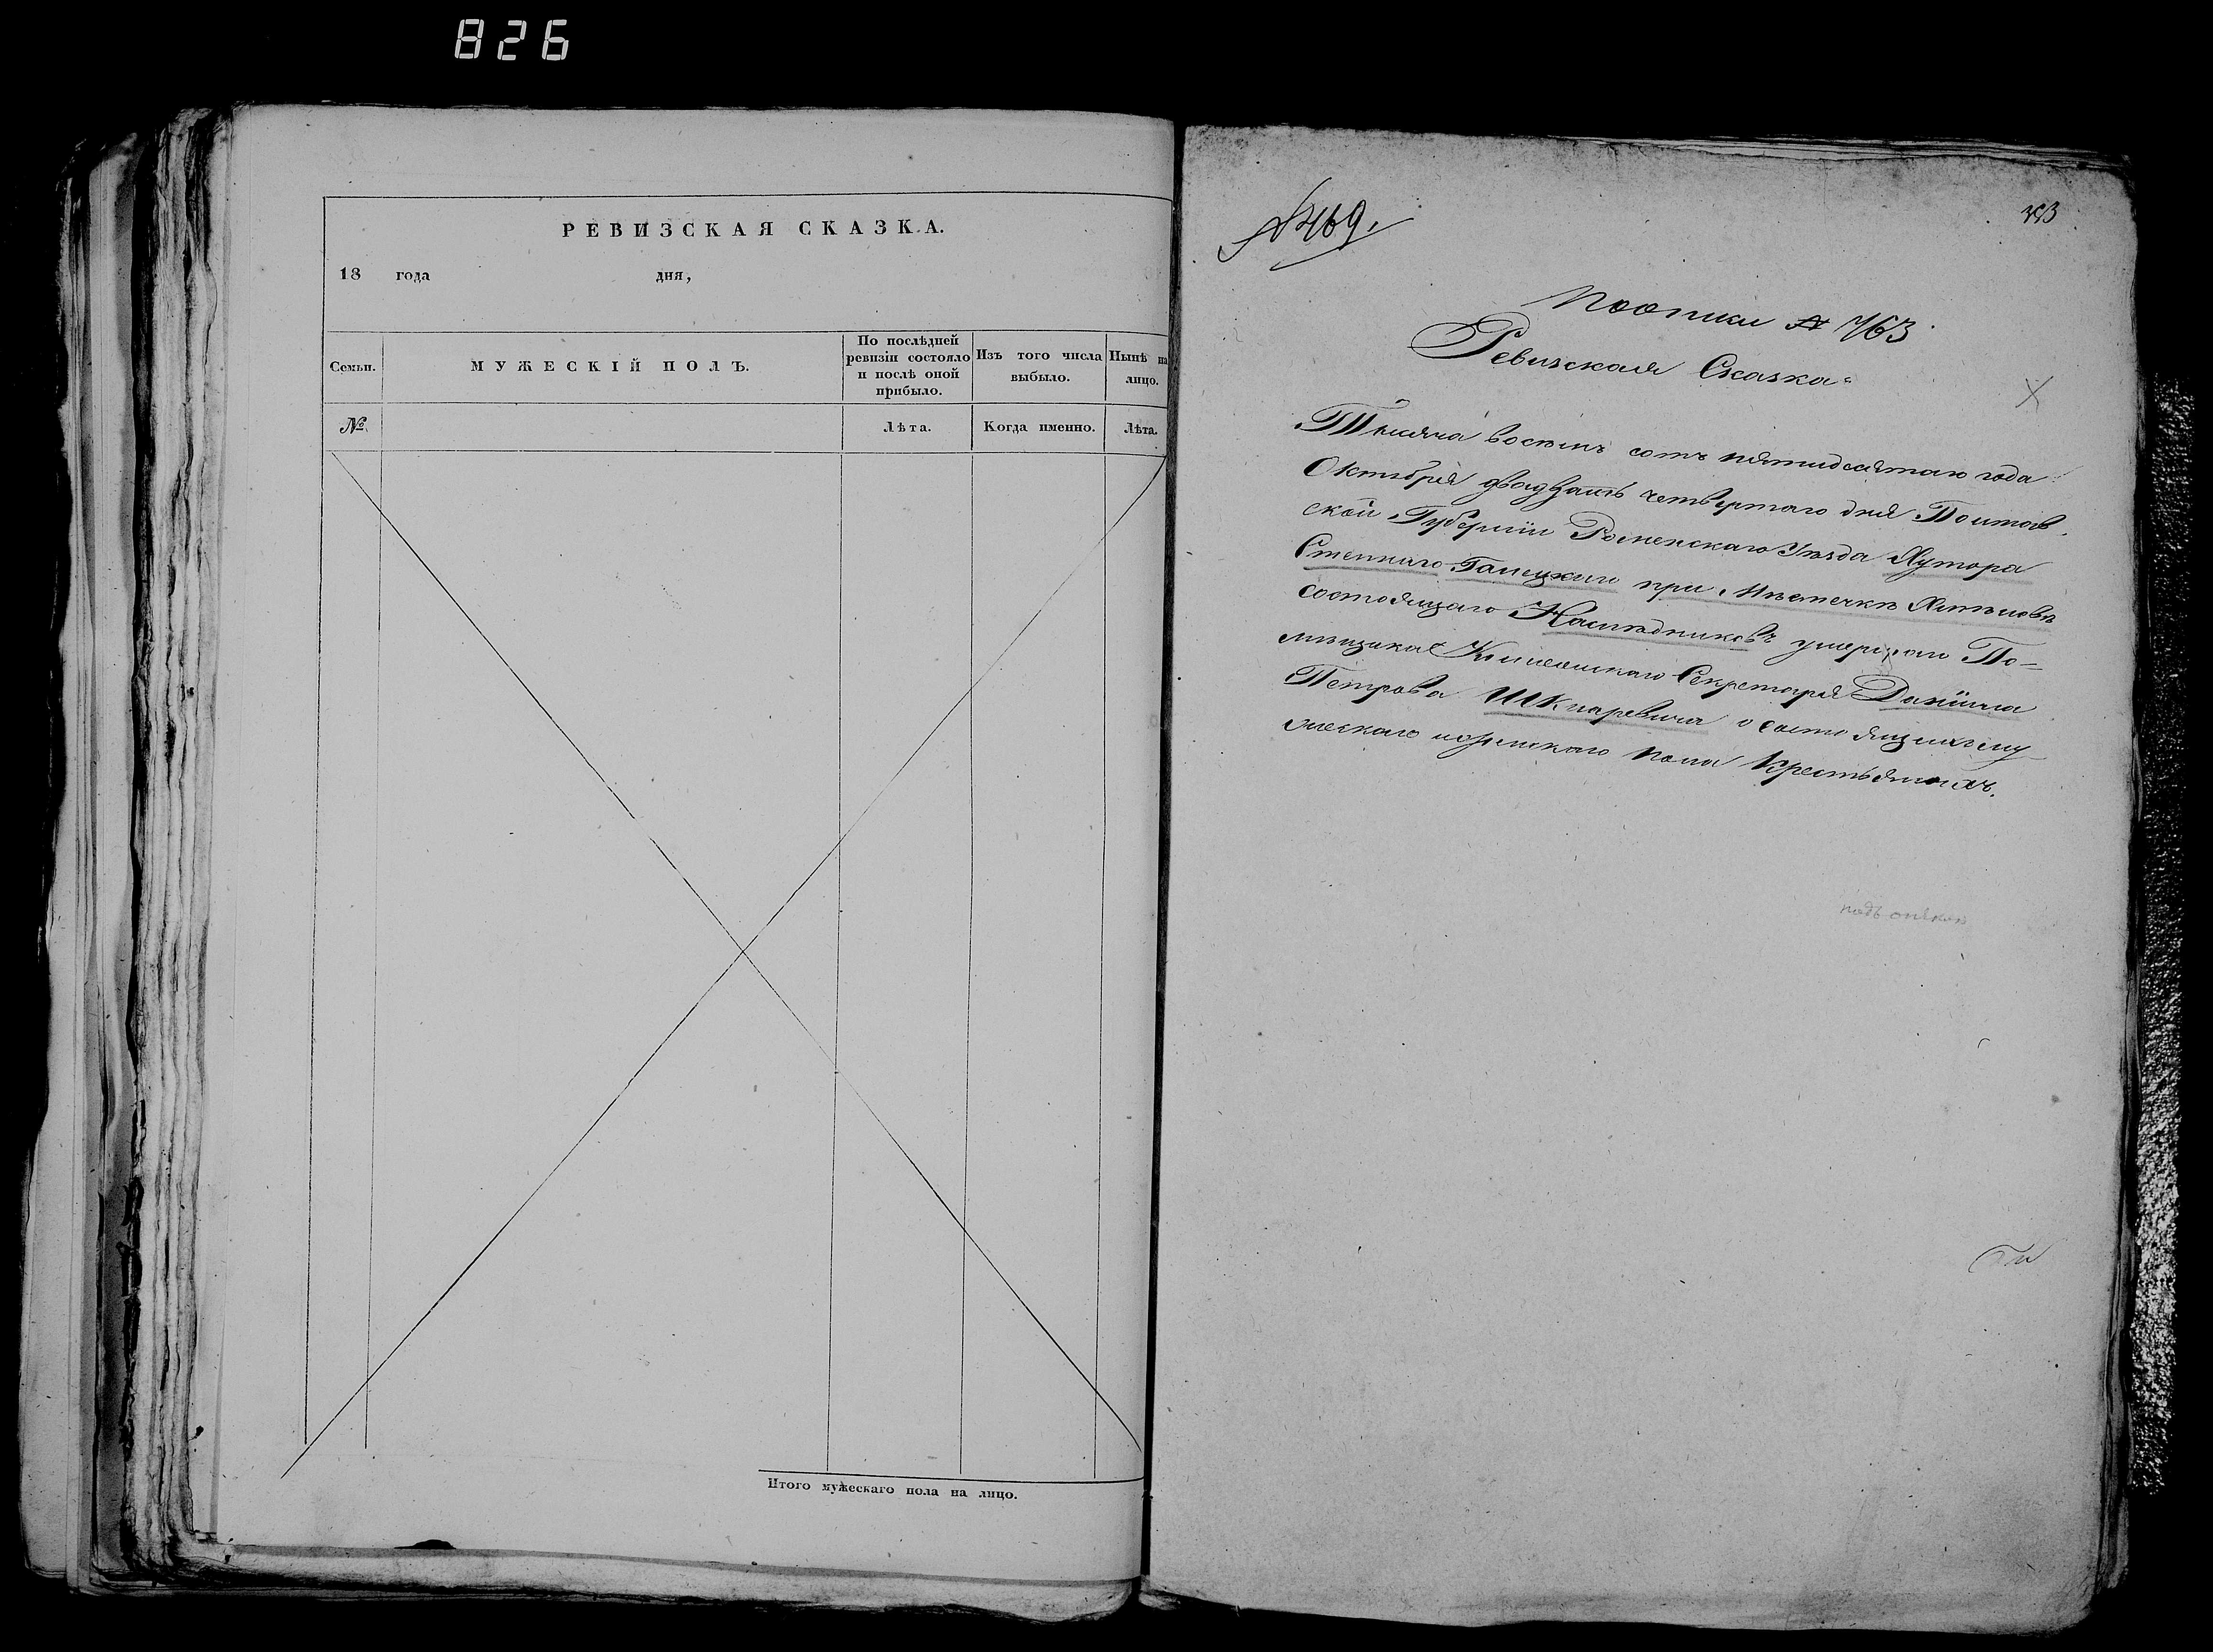 826
РЕВИЗСКАЯ СКАЗКА.
18 года дня,
Семьи.
МУЖЕСКІЙ ПОЛЪ.
По послѣдней ревизіи состояло и послѣ оной прибыло.
Изъ того числа выбыло.
Нынѣ на лицо.
№
Лѣта.
Когда именно.
Лѣта.
Итого мужескаго пола на лицо.
№ 469.
Поопики № 463
Ревизская Сказка
Тысяча восемь сотъ пятидесятаго года
Октября двадцать четвертаго дня Полтав
ской Губерніи Роменскаго Уѣзда Хутора
Степнаго при Мѣстечкѣ
состоящаго Наслѣдниковъ умершаго По-
мѣщика Секретаря Даніила
Петрова Шкляревича о состоящихъ му
жескаго и женскаго пола Крестьянахъ.
подъ опекою